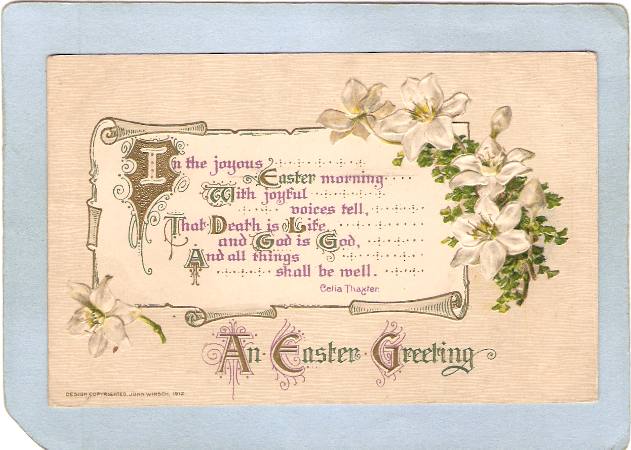 In the joyous
Easter morning
With joyful
voices tell,
That Death is Life
and God is God,
And all things
shall be well.
Celia Thaxter.
An Easter Greeting
DESIGN COPYRIGHTED, JOHN WINSCH, 1912